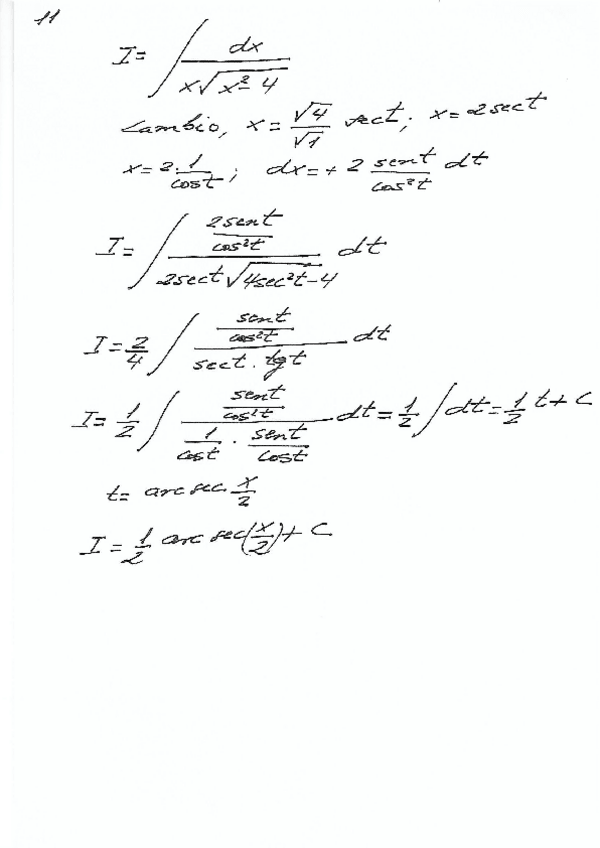 11
I = ∫ dx / (x√(x² - 4))
Cambio, x = √4/√1 sec t; x = 2 sec t
x = 2 · 1/cos t; dx = + 2 sen t/cos² t dt
I = ∫ (2 sen t/cos² t) / (2 sec t √(4 sec² t - 4)) dt
I = 2/4 ∫ (sen t/cos² t) / (sec t · tg t) dt
I = 1/2 ∫ (sen t/cos² t) / (1/cos t · sen t/cos t) dt = 1/2 ∫ dt = 1/2 t + C
t = arc sec x/2
I = 1/2 arc sec (x/2) + C